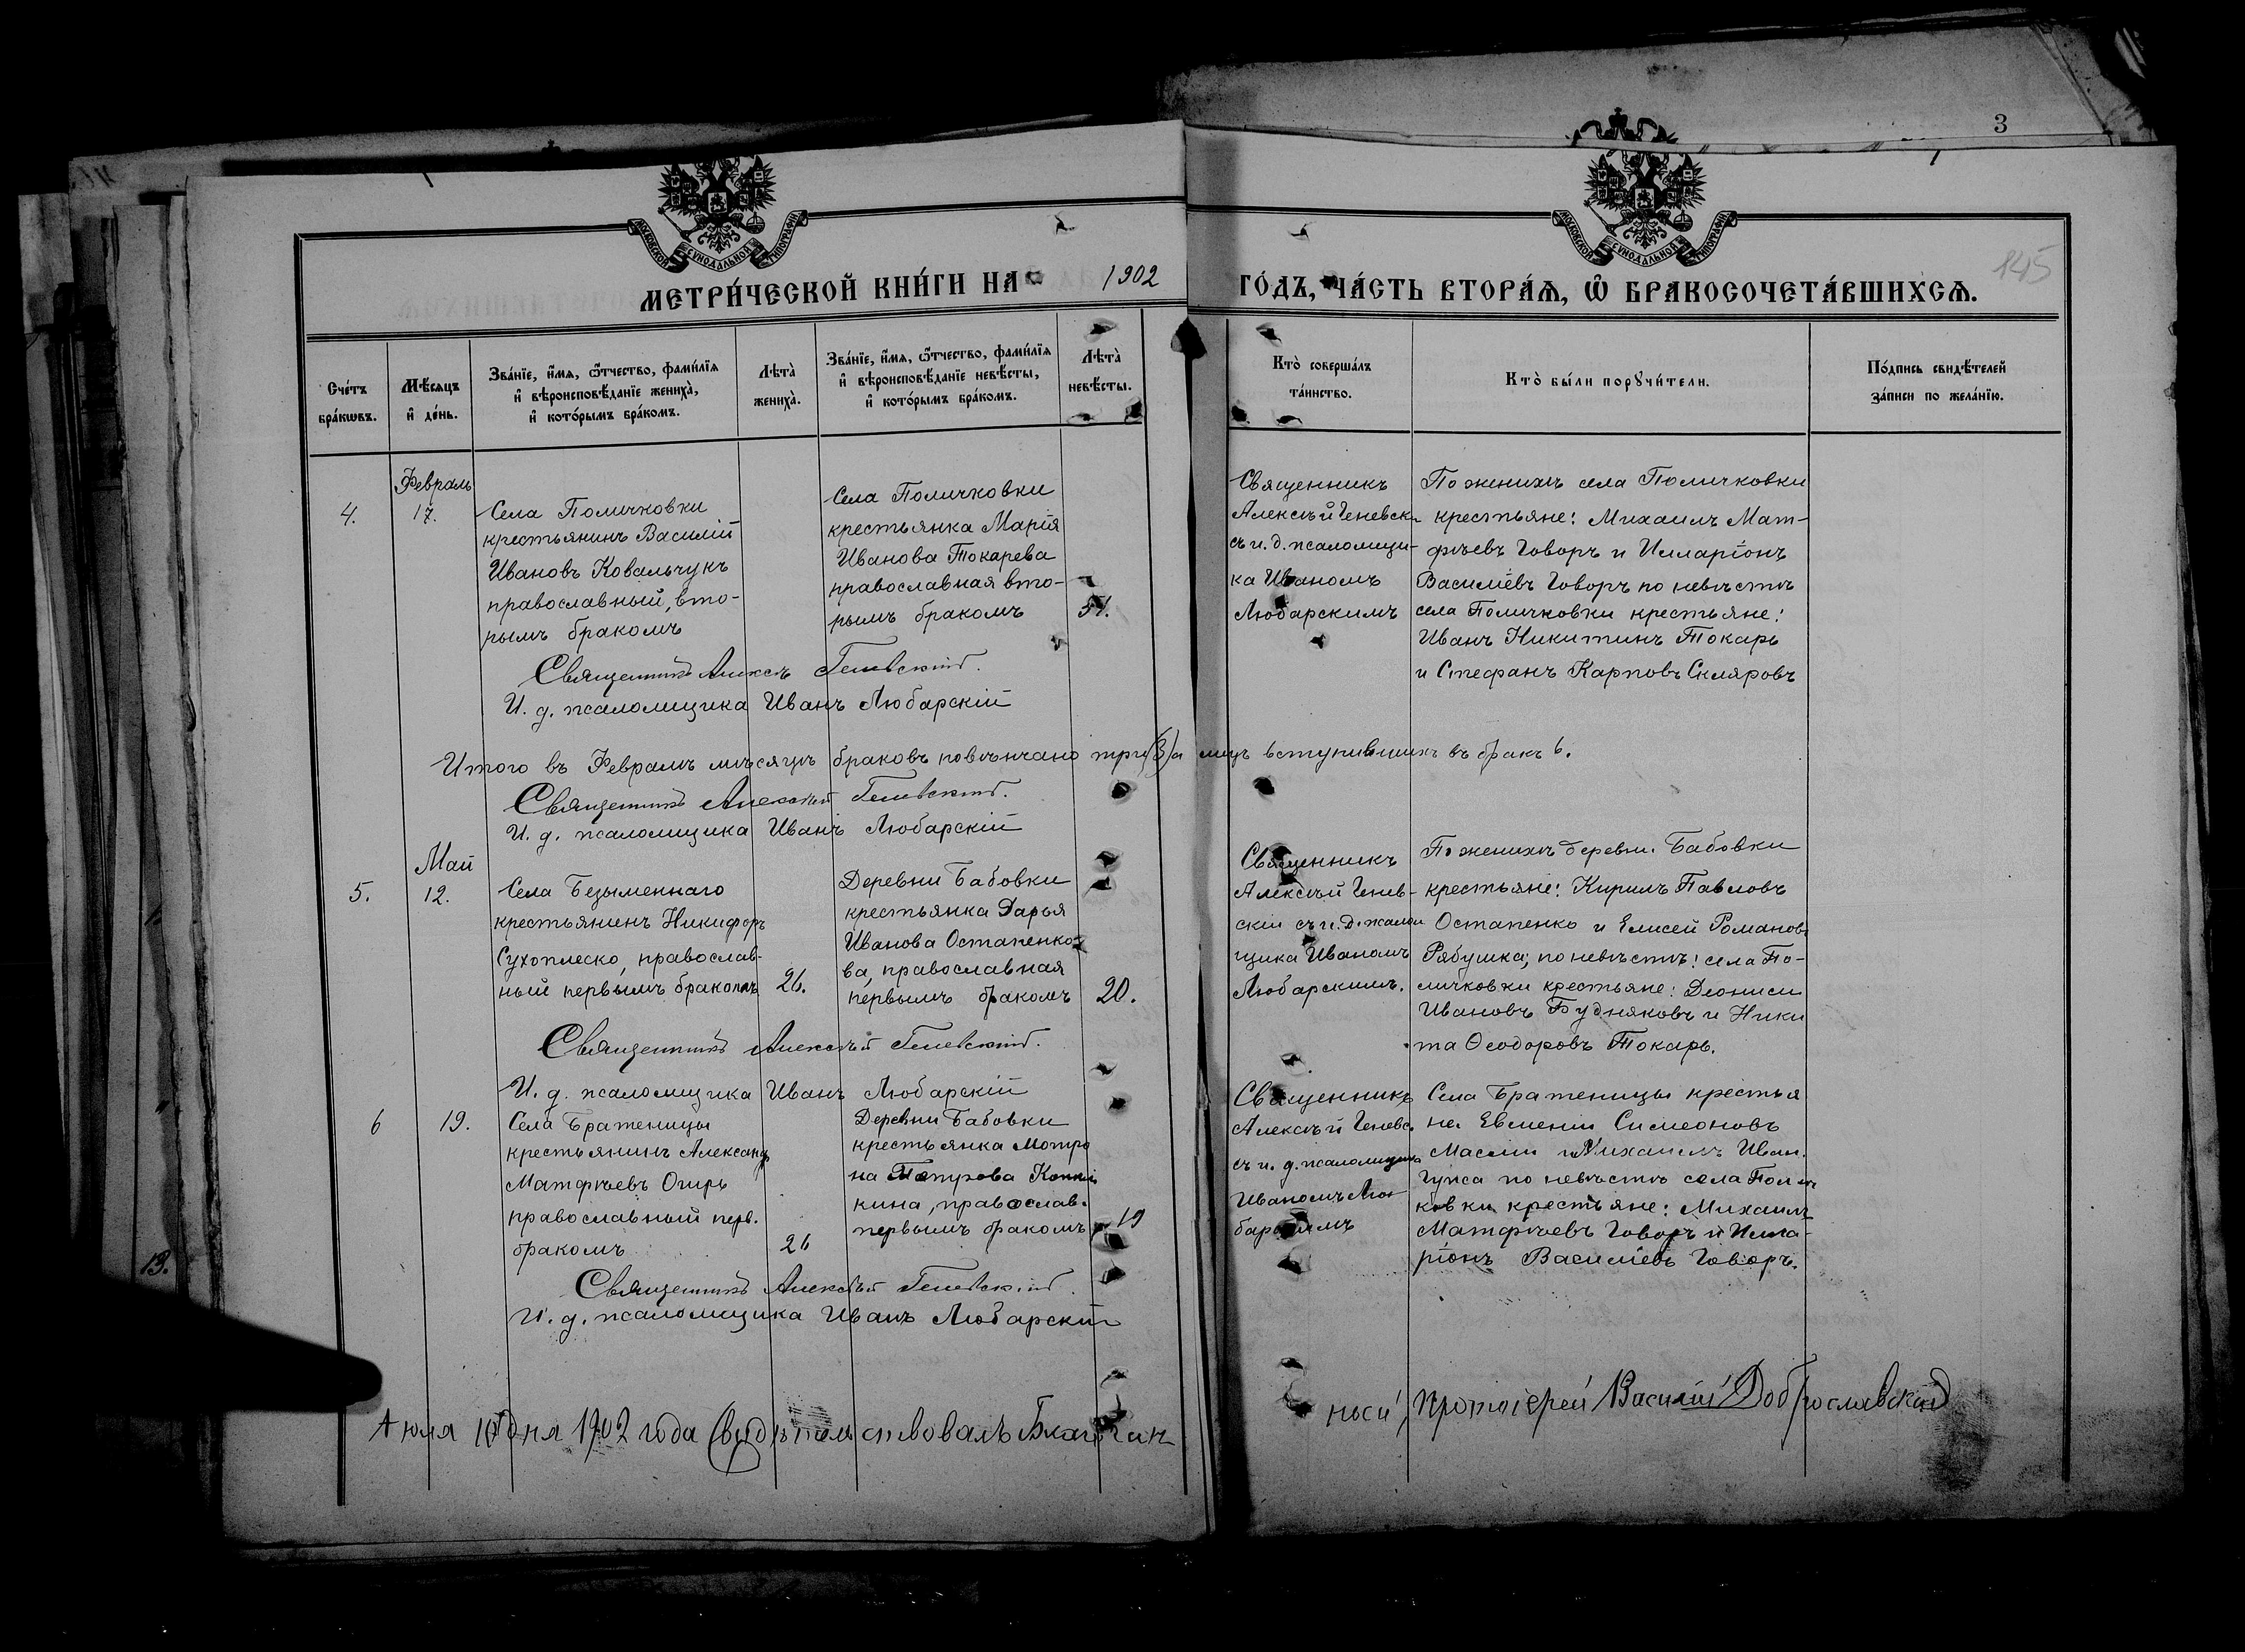 3
145
МОСКОВСКОЙ СУНОДАЛЬНОЙ ТИПОГРАФІИ
МОСКОВСКОЙ СУНОДАЛЬНОЙ ТИПОГРАФІИ
МЕТРИ́ЧЕСКОЙ КНИ́ГИ НА 1902 ГО́ДЪ, ЧА́СТЬ ВТОРА́Ѧ, Ѽ БРАКОСОЧЕТА́ВШИХСѦ.
Сче́тъ
бра́кѡвъ.
Мѣ́сѧцъ
и҆ де́нь.
Зва́нїе, и҆́мѧ, ѻ҆́тчество, фами́лїѧ
и҆ вѣроисповѣ́данїе жениха̀,
и҆ кото́рымъ бра́комъ.
Лѣта̀
жениха̀.
Зва́нїе, и҆́мѧ, ѻ҆́тчество, фами́лїѧ
и҆ вѣроисповѣ́данїе невѣ́сты,
и҆ кото́рымъ бра́комъ.
Лѣта̀
невѣ́сты.
Кто̀ соверша́лъ
та́инство.
Кто̀ бы́ли порꙋчи́тели.
По́дпись свидѣ́телей
за́писи по жела́нїю.
Февраль
4.
17.
Села Поличковки
крестьянинъ Василій
Ивановъ Ковальчукъ
православный, вто-
рымъ бракомъ
Села Поличковки
крестьянка Марія
Иванова Токарева
православная вто-
рымъ бракомъ
51.
Священникъ
Алексѣй Геневск
съ и. д. псаломщи-
ка Иваномъ
Любарскимъ
По женихѣ села Поличковки
крестьяне: Михаилъ Мат-
фѣевъ Говоръ и Илларіонъ
Василіевъ Говоръ по невѣстѣ
села Поличковки крестьяне:
Иванъ Никитинъ Токарь
и Стефанъ Карповъ Скляровъ
Священникъ Алексѣ Геневскій.
И. д. псаломщика Иванъ Любарскій
Итого въ Февралѣ мѣсяцѣ браковъ повѣнчано три (3) а лицъ вступившихъ въ бракъ 6.
Священникъ Алексѣй Геневскій.
И. д. псаломщика Иванъ Любарскій
Май
5.
12.
Села Безыменнаго
крестьянинъ Никифоръ
Сухоплеско, православ-
ный первымъ бракомъ
26.
Деревни Бабовки
крестьянка Дарья
Иванова Остапенко-
ва, православная
первымъ бракомъ
20.
Священникъ
Алексѣй Генев-
скій съ и. д. псалом
щика Иваномъ
Любарскимъ.
По женихѣ деревни Бабовки
крестьяне: Кирилъ Павловъ
Остапенко и Елисей Романовъ
Рябушка; по невѣстѣ: села По-
личковки крестьяне: Деониси
Ивановъ Будняковъ и Ники
та Ѳеодоровъ Токарь.
Священникъ Алексѣй Геневскій.
И. д. псаломщика Иванъ Любарскій
6
19.
Села Братеницы
крестьянинъ Александръ
Матфѣевъ Огирь
православный перв.
бракомъ
26
Деревни Бабовки
крестьянка Мотро
на Петрова
кина, православ.
первымъ бракомъ
19
Священникъ
Алексѣй Геневс.
съ и. д. псаломщика
Иваномъ Лю-
барскимъ
Села Братеницы крестья
не Евменій Симеоновъ
Маслии и Михаилъ Иван.
по невѣстѣ села Полич
ковки крестьяне: Михаилъ
Матфѣевъ Говоръ и Илла-
ріонъ Василіевъ Говоръ.
Священникъ Алексѣй Геневскій.
И. д. псаломщика Иванъ Любарскій
Іюля 10 дня 1902 года Свидѣтельствовалъ Благочин
ный, Протоіерей Василій Доброславскій
13.